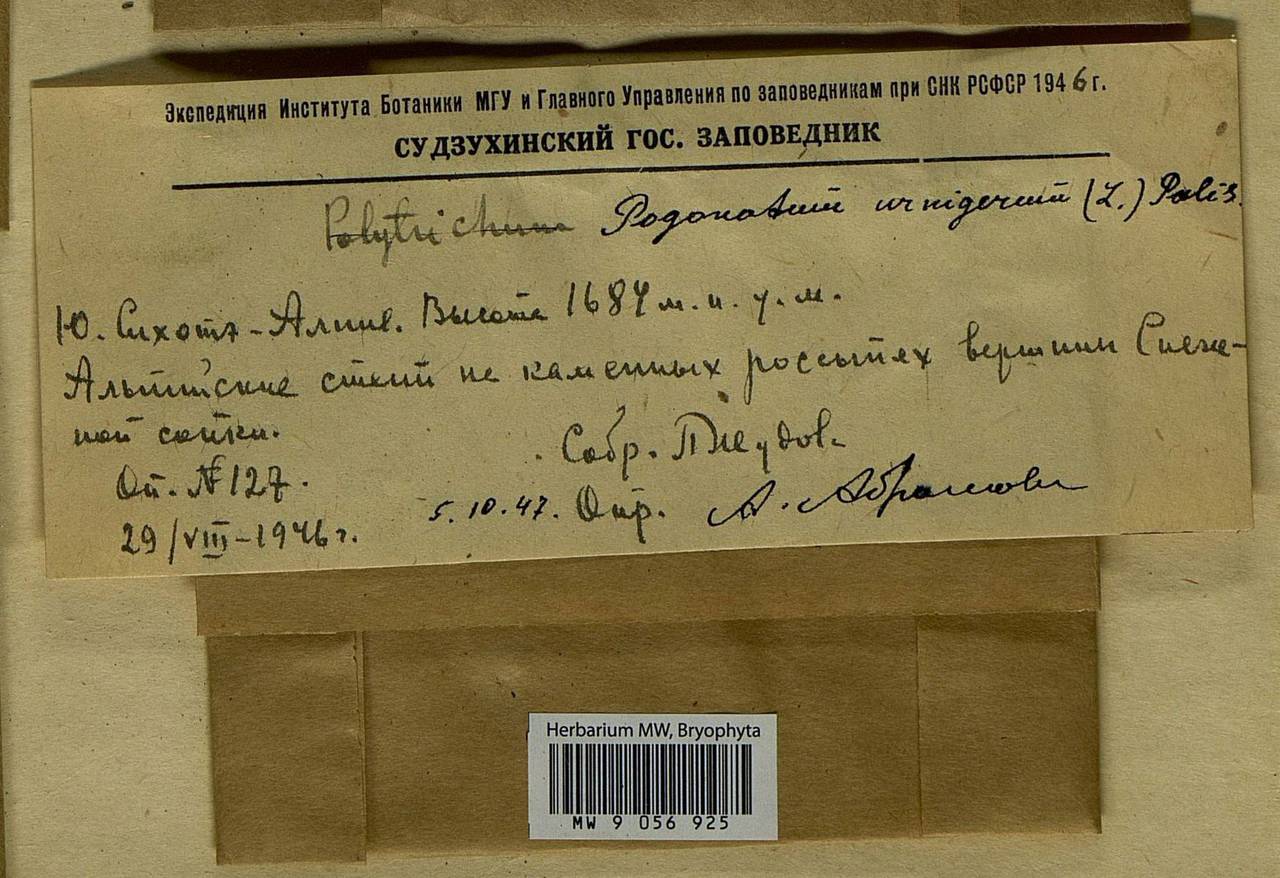 Экспедиция Института Ботаники МГУ и Главного Управления по заповедникам при СНК РСФСР 1946 г.
СУДЗУХИНСКИЙ ГОС. ЗАПОВЕДНИК
Polytrichum Pogonatum urnigerum (L.) Palis.
Ю. Сихотэ-Алинь. Высота 1684 м. н. у. м.
Альпийские на каменных россыпях вершины Снеж-
ной сопки.
Оп. № 127. Собр.
29/VIII-1946 г. 5.10.47. Опр. А. Абрамова
Herbarium MW, Bryophyta
MW 9 056 925